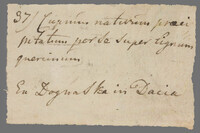 37) Cuprum nativum praci
pitatum per se super lignum
quercinum
Ex Dognaska in Dacia